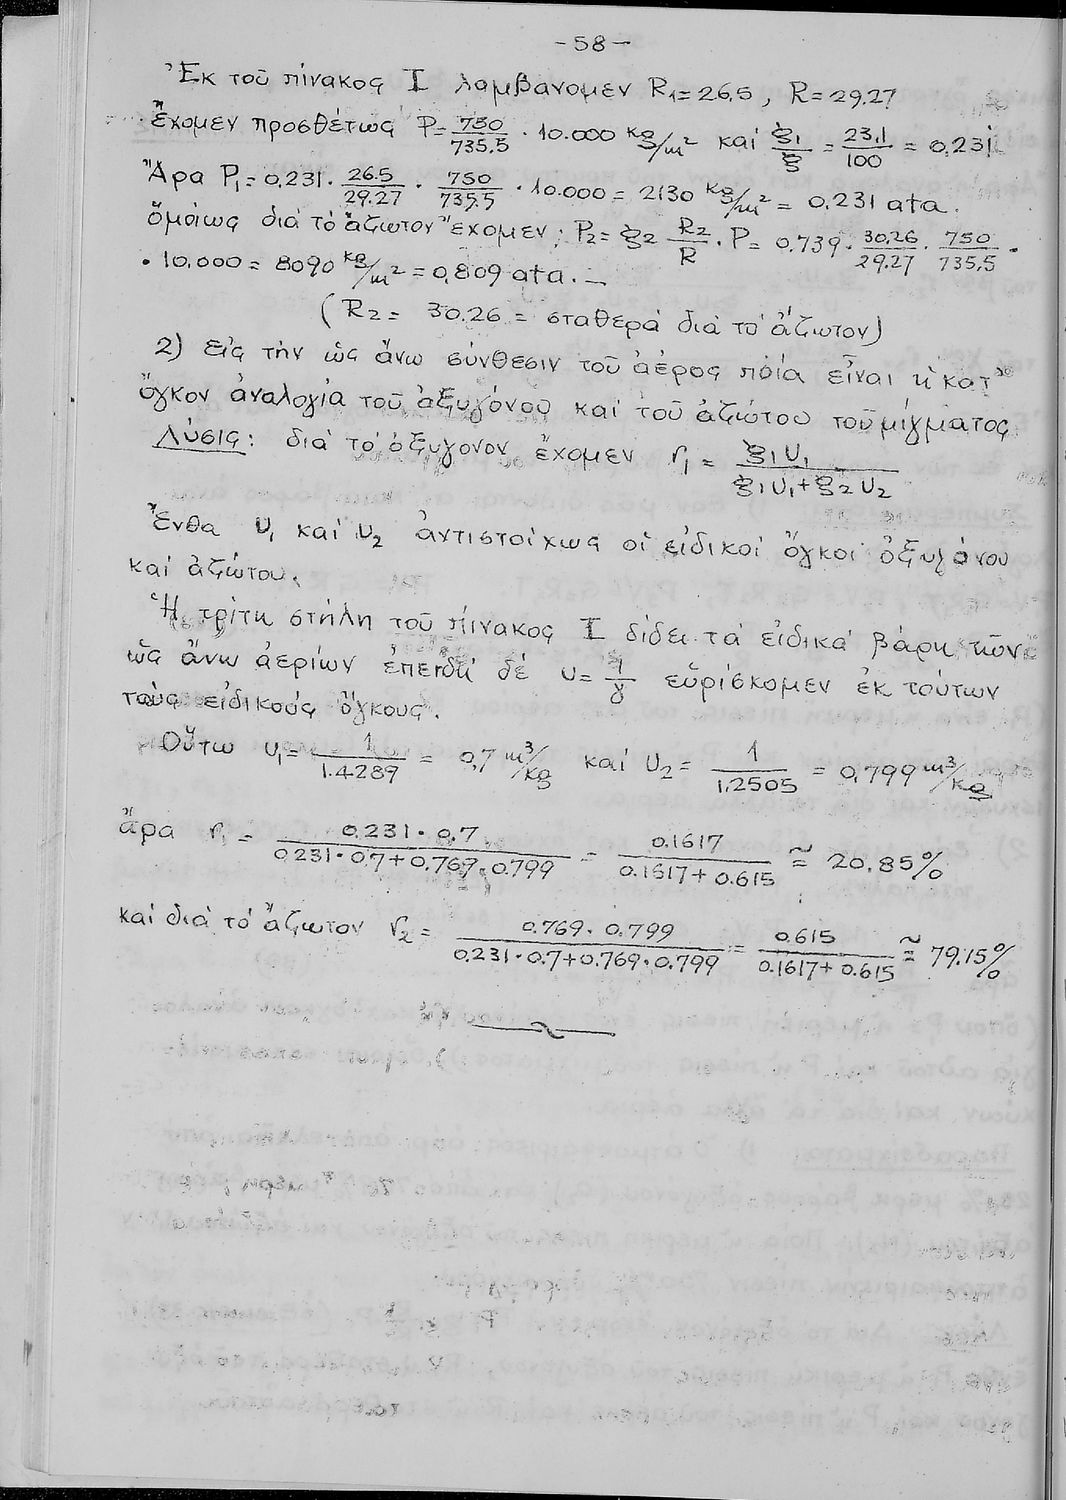 -58-
Ἐκ τοῦ πίνακος I λαμβάνομεν R₁=26.5, R=29.27
ἔχομεν προσθέτως P=750/735.5 · 10.000 kg/m² καί ξ₁/ξ = 23.1/100 = 0.231.
Ἄρα P₁=0.231 · 26.5/29.27 · 750/735.5 · 10.000 = 2130 kg/m² = 0.231 ata.
ὁμοίως διά τό ἄζωτον ἔχομεν: P₂= ξ₂ R₂/R · P = 0.739 · 30.26/29.27 · 750/735.5 ·
· 10.000 = 8090 kg/m² = 0,809 ata. –
(R₂ = 30.26 = σταθερά διά τό ἄζωτον)
2) εἰς τήν ὡς ἄνω σύνθεσιν τοῦ ἀέρος ποία εἶναι ἡ κατ'
ὄγκον ἀναλογία τοῦ ὀξυγόνου καί τοῦ ἀζώτου τοῦ μίγματος
Λύσις: διά τό ὀξυγονον ἔχομεν r₁ = ξ₁υ₁/ξ₁υ₁+ξ₂υ₂
Ἔνθα υ₁ καί υ₂ ἀντιστοίχως οἱ εἰδικοί ὄγκοι ὀξυγόνου
καί ἀζώτου.
Ἡ τρίτη στήλη τοῦ πίνακος I δίδει τά εἰδικά βάρη τῶν
ὡς ἄνω ἀερίων ἐπειδή δέ υ= 1/γ εὑρίσκομεν ἐκ τούτων
τούς εἰδικούς ὄγκους.
Οὕτω υ₁= 1/1.4289 = 0,7 m³/kg καί υ₂ = 1/1.2505 = 0,799 m³/kg
ἄρα r₁ = 0.231 · 0.7/0.231·0.7+0.769·0.799 = 0.1617/0.1617+0.615 ≅ 20,85%
καί διά τό ἄζωτον r₂ = 0.769 · 0.799/0.231·0.7+0.769·0.799 = 0.615/0.1617+0.615 ≅ 79.15%